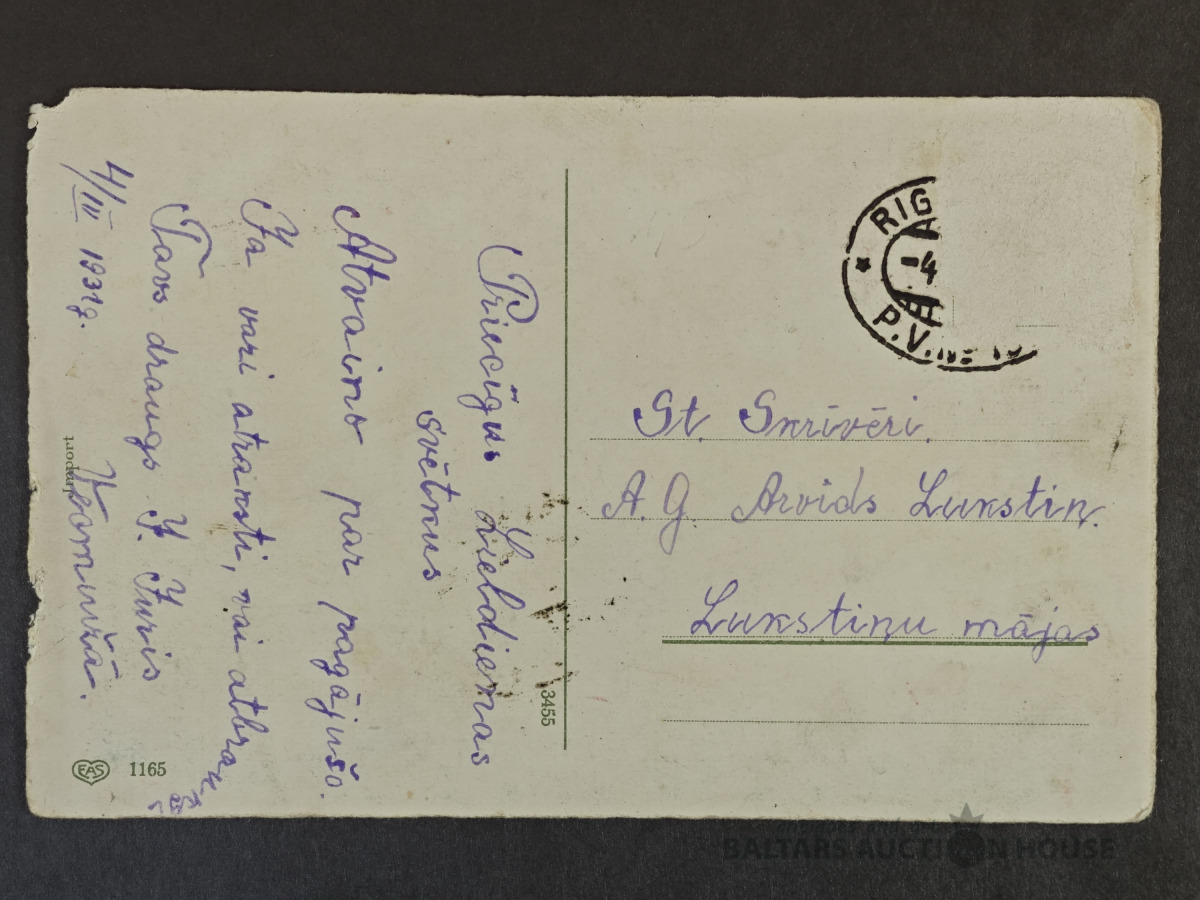 Priecīgus Lieldiemas
svētkus
Atvaino par pagājušo.
Ja vari atraksti, vai atbrauk
Tavs draugs J. Juris
4/IV 1931g.
Import
EAS 1165
3455
RIG
-4
P.V.
St. Skrīvēri.
A. G. Arvids Lukstiņ.
Lukstiņu mājas
BALTARS AUCTION HOUSE